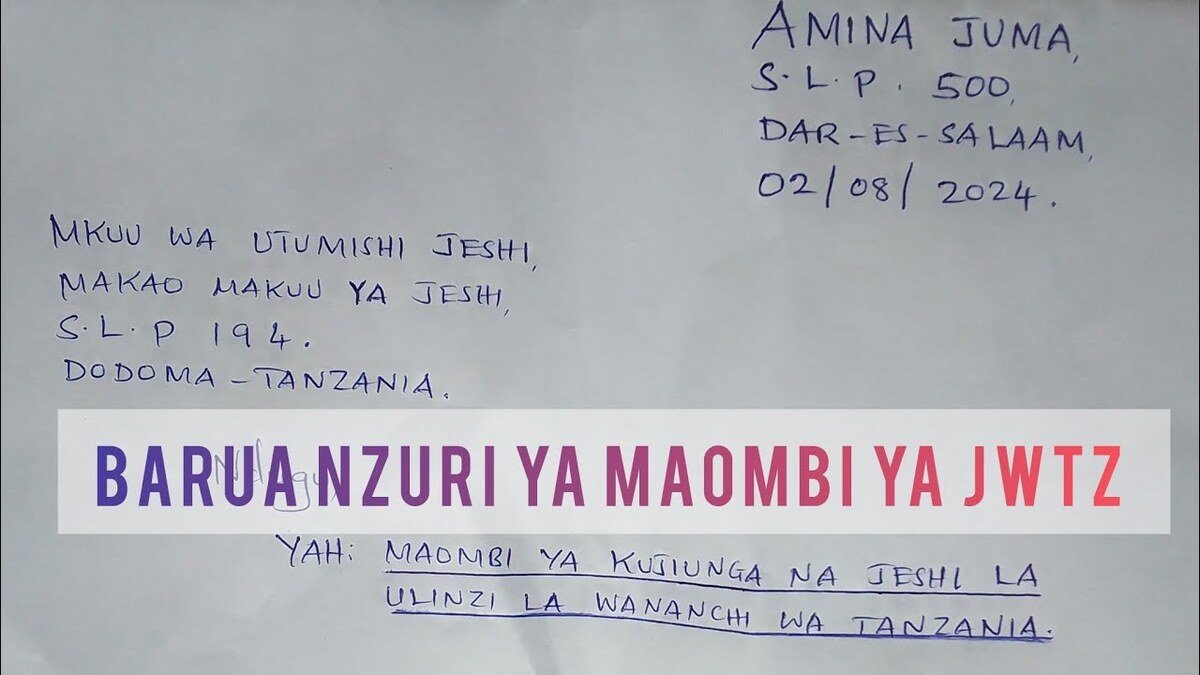 AMINA JUMA,
S.L.P. 500,
DAR-ES-SALAAM,
02/08/2024.
MKUU WA UTUMISHI JESHI,
MAKAO MAKUU YA JESHI,
S.L.P 194.
DODOMA-TANZANIA.
BARUA NZURI YA MAOMBI YA JWTZ
YAH: MAOMBI YA KUJIUNGA NA JESHI LA
ULINZI LA WANANCHI WA TANZANIA.